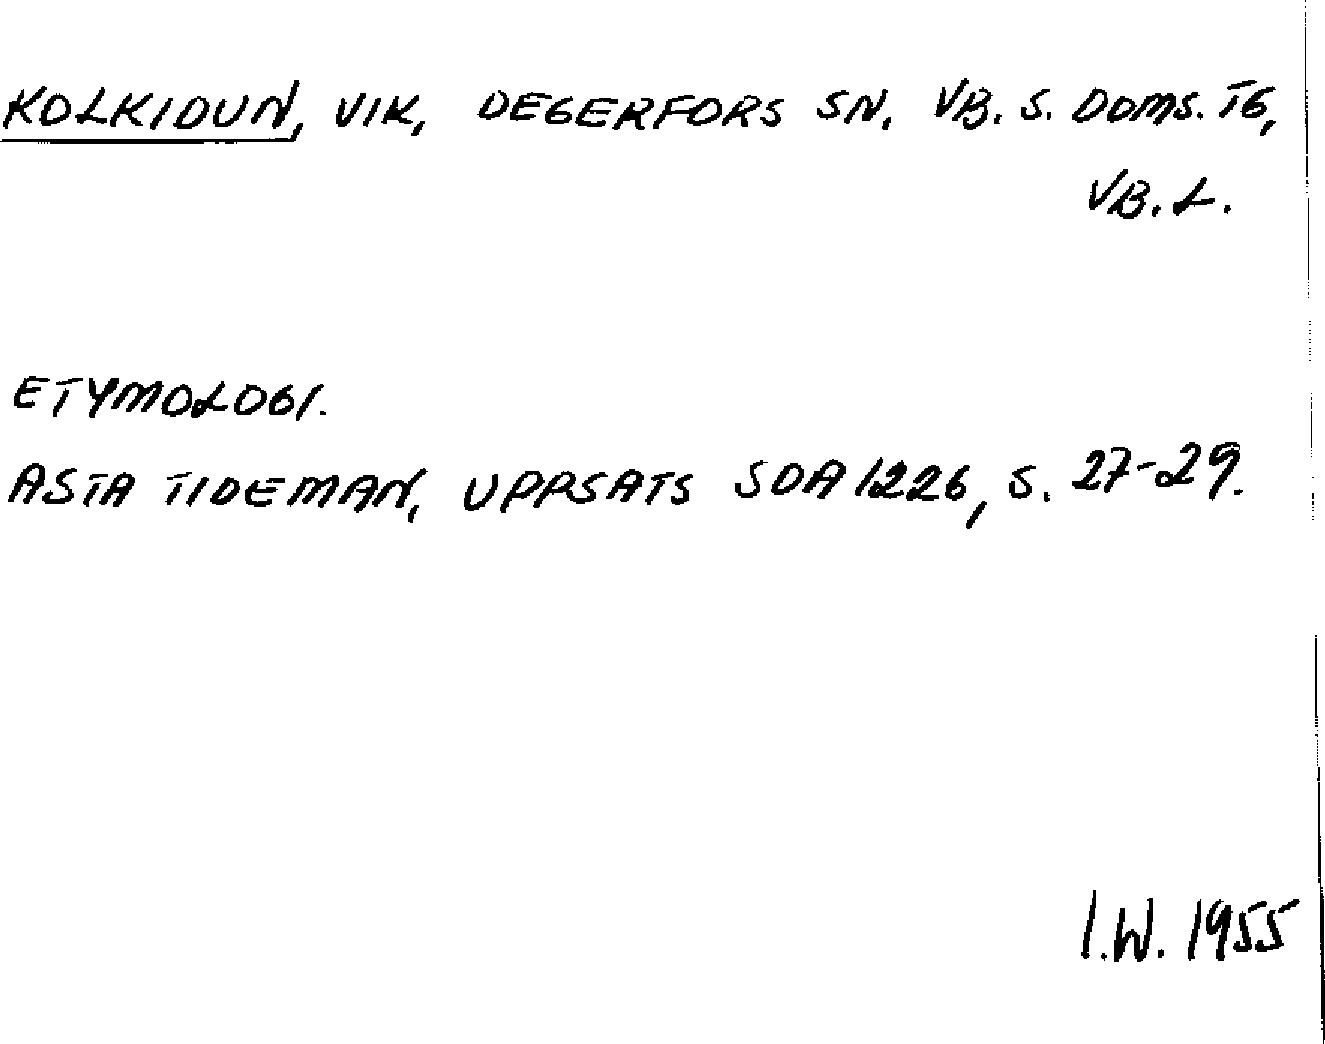 KOLKIDUN, VIK, DEGERFORS SN. VB. S. DOMS. TG,
VB. L.
ETYMOLOGI.
ASTA TIDEMAN, UPPSATS SOA 1226, S. 27-29.
I.W. 1955